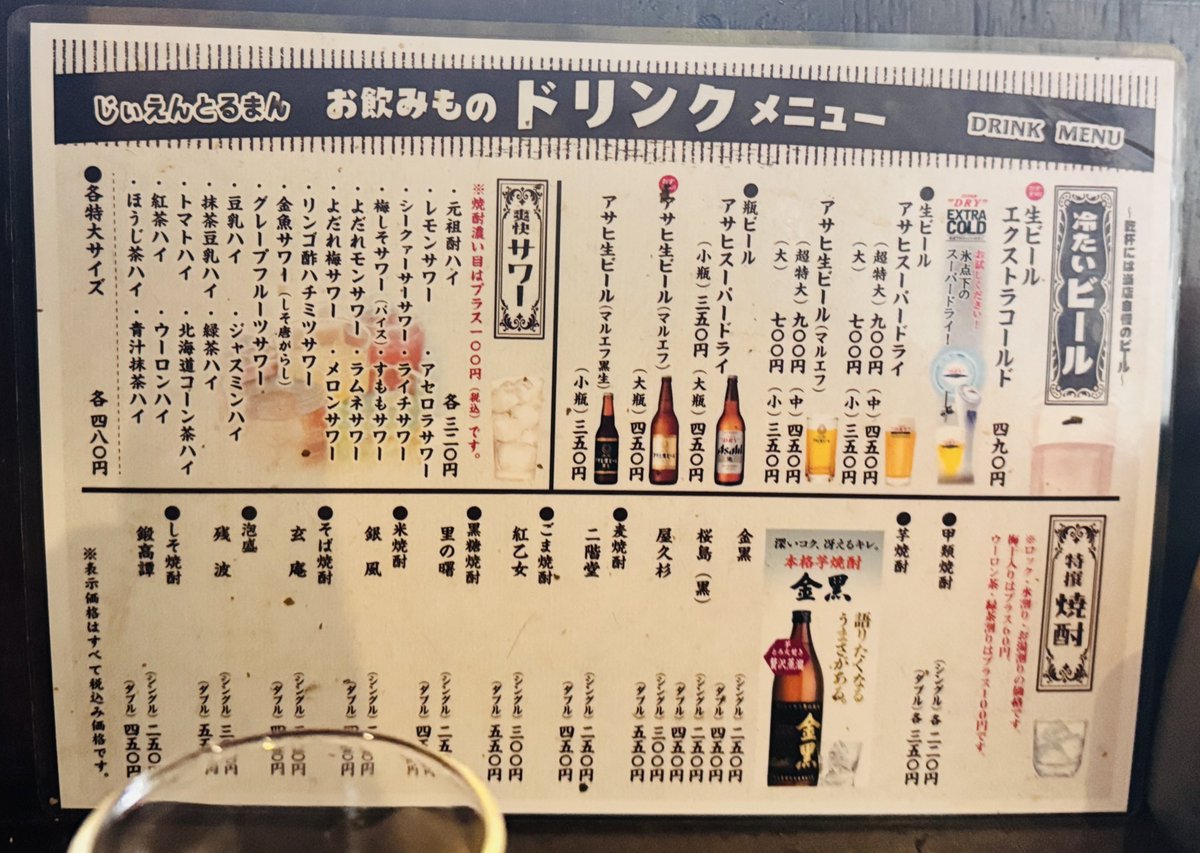 じぃえんとるまん お飲みもの ドリンクメニュー DRINK MENU
~乾杯には当店自慢のビール~
冷たいビール
●生ビール
エクストラコールド 四九〇円
"DRY"
EXTRA
COLD
お試しください!
氷点下の
スーパードライ!
●生ビール
アサヒスーパードライ
(超特大)九〇〇円 (中)四五〇円
(大) 七〇〇円 (小)三五〇円
アサヒ生ビール(マルエフ)
(超特大)九〇〇円 (中)四五〇円
(大) 七〇〇円 (小)三五〇円
●瓶ビール
アサヒスーパードライ
(小瓶)三五〇円 (大瓶)四五〇円
アサヒ生ビール(マルエフ)
(大瓶)四五〇円
アサヒ生ビール(マルエフ黒生)
(小瓶)三五〇円
爽快 サワー
※焼酎濃い目はプラス一〇〇円(税込)です。
・元祖酎ハイ 各三二〇円
・レモンサワー ・アセロラサワー
・シークァーサーサワー ・ライチサワー
・梅しそサワー(バイス) ・すももサワー
・よだれモンサワー ・ラムネサワー
・よだれ梅サワー ・メロンサワー
・リンゴ酢ハチミツサワー
・金魚サワー(しそ唐がらし)
・グレープフルーツサワー
・豆乳ハイ ・ジャスミンハイ
・抹茶豆乳ハイ ・緑茶ハイ
・トマトハイ ・北海道コーン茶ハイ
・紅茶ハイ ・ウーロンハイ
・ほうじ茶ハイ ・青汁抹茶ハイ
●各特大サイズ 各四八〇円
特撰 焼酎
※ロック・水割り・お湯割りの価格です
梅干入りはプラス60円、
ウーロン茶・緑茶割りはプラス100円です。
●甲類焼酎 (シングル)各二二〇円
(ダブル)各三五〇円
●芋焼酎
深いコク、冴えるキレ。
本格芋焼酎
金黒
語りたくなる
うまさがある。
贅沢蒸溜
金黒
金黒 (シングル)二五〇円
(ダブル)四五〇円
桜島(黒) (シングル)二五〇円
(ダブル)四五〇円
屋久杉 (シングル)三〇〇円
(ダブル)五五〇円
●麦焼酎
二階堂 (シングル)二五〇円
(ダブル)四五〇円
●ごま焼酎
紅乙女 (シングル)三〇〇円
(ダブル)五五〇円
●黒糖焼酎
里の曙 (シングル)二五
(ダブル)四五
●米焼酎
銀風 (シングル)二五〇円
(ダブル)四五〇円
●そば焼酎
玄庵 (シングル)二五〇円
(ダブル)四五〇円
●泡盛
残波 (シングル)三〇〇円
(ダブル)五五〇円
●しそ焼酎
鍛高譚 (シングル)二五〇円
(ダブル)四五〇円
※表示価格はすべて税込み価格です。